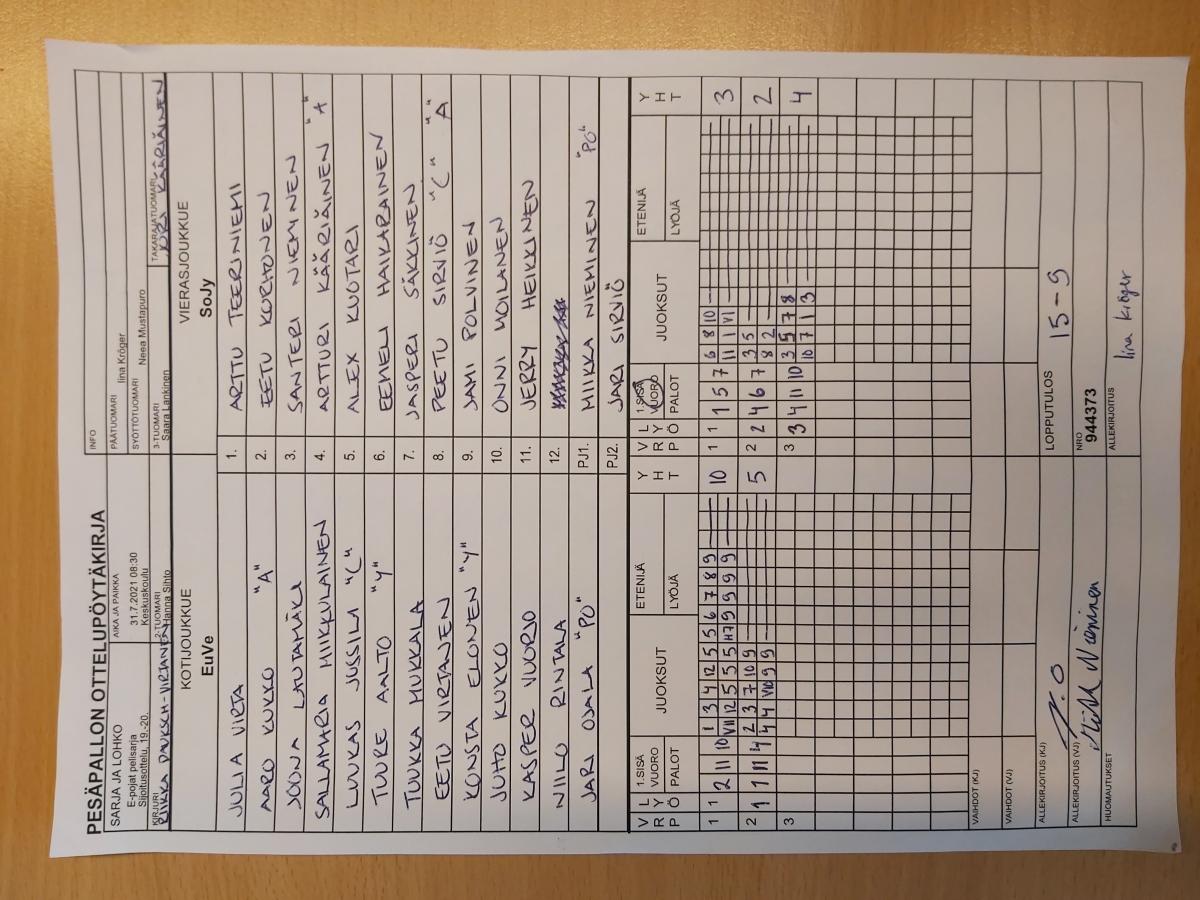 PESÄPALLON OTTELUPÖYTÄKIRJA
INFO
SARJA JA LOHKO
E-pojat pelisarja
Sijoitusottelu, 19.-20.
AIKA JA PAIKKA
31.7.2021 08:30
Keskuskoulu
PÄÄTUOMARI
Iina Kröger
SYÖTTÖTUOMARI
Neea Mustapuro
KIRJURI
2-TUOMARI
Hanna Sihto
3-TUOMARI
Saara Lankinen
TAKARAJATUOMARI
KOTIJOUKKUE
EuVe
VIERASJOUKKUE
SoJy
JULIA VIRTA 1. ARTTU TEERINIEMI
AARO KUKKO "A" 2. EETU KORHONEN
JOONA LAUTAMÄKI 3. SANTERI NIEMINEN
SALLAMARIA MIKKULAINEN 4. ARTTURI KÄÄRIÄINEN "A"
LUUKAS JUSSILA "C" 5. ALEX KUOTARI
TUURE AALTO "Y" 6. EEMELI HAIKARAINEN
TUUKKA MUKKALA 7. JASPERI SÄKKINEN
EETU VIRTAJEN 8. PEETU SIRVIÖ "C" "A"
KONSTA ELONEN "Y" 9. JAMI POLVINEN
JUHO KUKKO 10. ONNI MOILANEN
KASPER VUORIO 11. JERRY HEIKKINEN
NIILO RINTALA 12.
JARI OJALA "PO" PJ1. MIIKKA NIEMINEN "PO"
PJ2. JARI SIRVIÖ
VRP LYÖ 1.SISÄVUORO PALOT JUOKSUT ETENIJÄ LYÖJÄ YHT VRP LYÖ 1.SISÄVUORO PALOT JUOKSUT ETENIJÄ LYÖJÄ YHT
1 1 2 11 10 1 3 4 12 5 5 6 7 8 9 10 1 1 1 5 7 6 8 10 3
VII 12 5 5 5 H7 9 9 9 9 11 1 VI
2 1 1 11 4 2 3 7 10 9 5 2 2 4 6 7 3 5 2
4 4 VIO 9 9 8 2
3 3 3 4 11 10 3 5 7 8 4
10 7 1 3
VAIHDOT (KJ)
VAIHDOT (VJ)
LOPPUTULOS 15-9
ALLEKIRJOITUS (KJ)
ALLEKIRJOITUS (VJ)
NRO
944373
HUOMAUTUKSET
ALLEKIRJOITUS
Iina Kröger